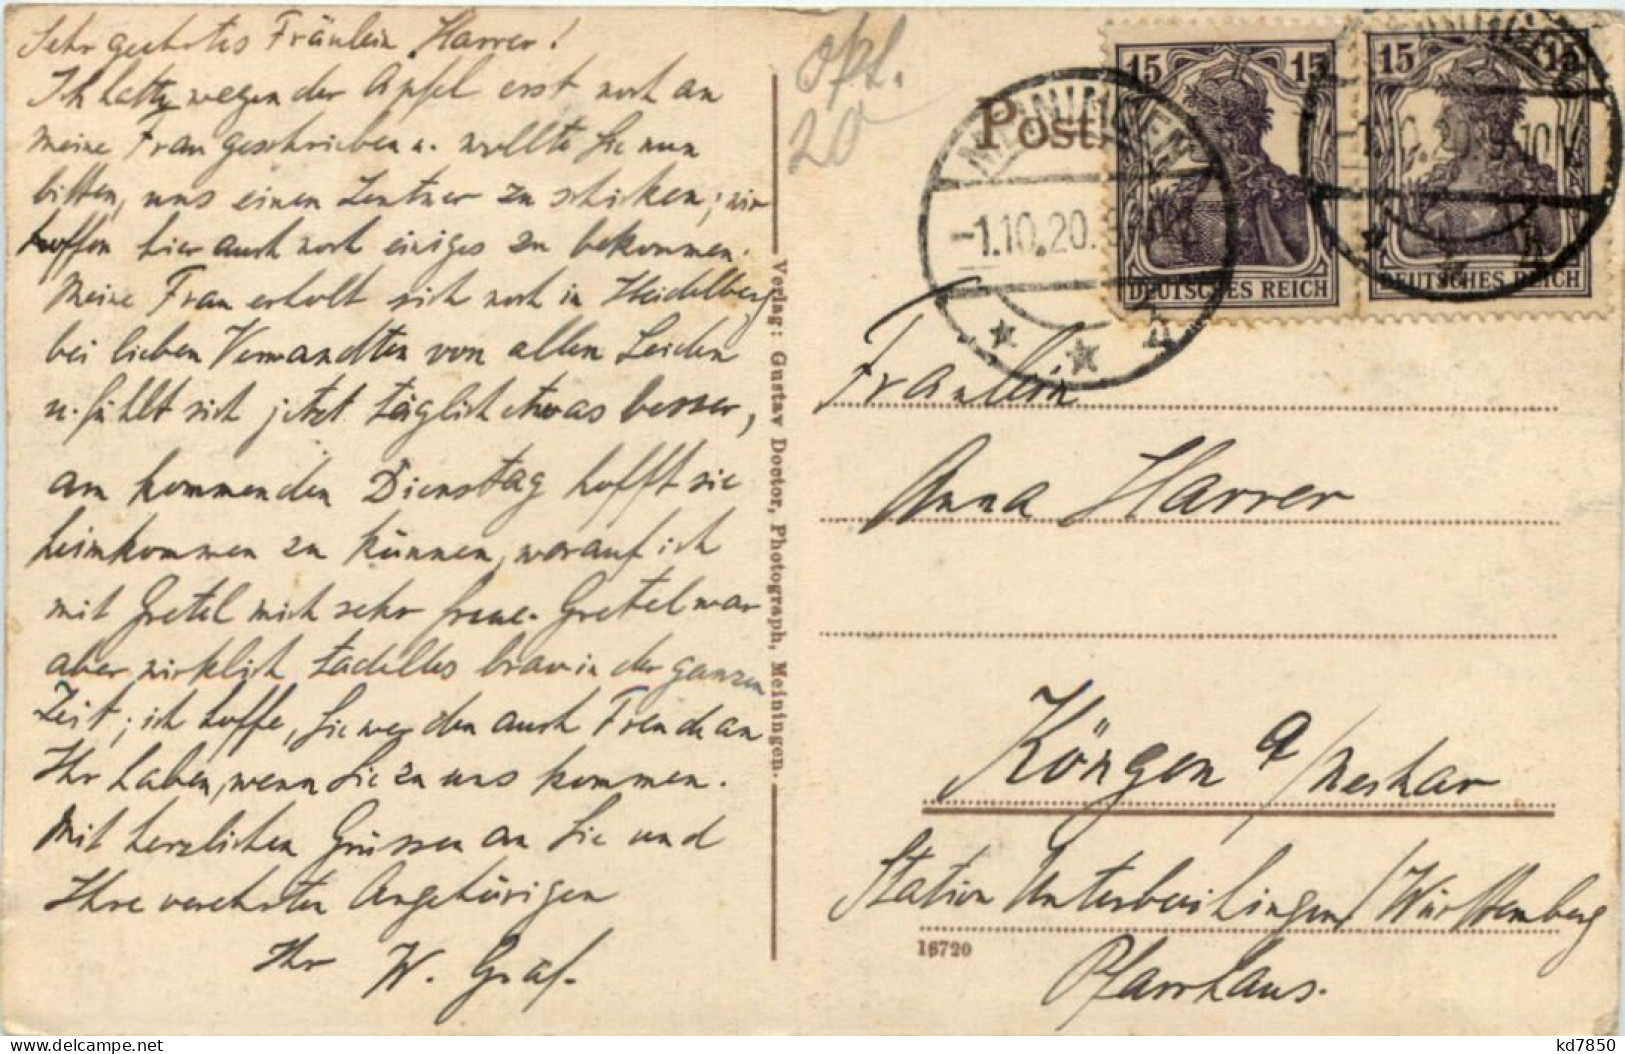 Sehr geehrtes Fräulein Harrer!
Ich hatte wegen der Äpfel erst noch an
meine Frau geschrieben u. wollte Sie nun
bitten, uns einen Zentner zu schicken; wir
hoffen hier auch noch einiges zu bekommen.
Meine Frau erholt sich noch in Heidelberg
bei lieben Verwandten von allen Leiden
u. fühlt sich jetzt täglich etwas besser,
am kommenden Dienstag hofft sie
heimkommen zu können, worauf ich
mit Gretel mich sehr freue. Gretel war
aber wirklich tadellos brav in der ganzen
Zeit; ich hoffe, Sie werden auch Freude an
Ihr haben, wenn Sie zu uns kommen.
Mit herzlichen Grüssen an Sie und
Ihre verehrten Angehörigen
Ihr W. Gräf.
Verlag: Gustav Doctor, Photograph, Meiningen.
Okt.
20
Post
MEININGEN
-1.10.20.
15 15
DEUTSCHES REICH
15 15
DEUTSCHES REICH
Fräulein
Anna Harrer
Köngen a/Neckar
Station Unterboihingen/Württemberg
Pfarrhaus.
16720
kd7850